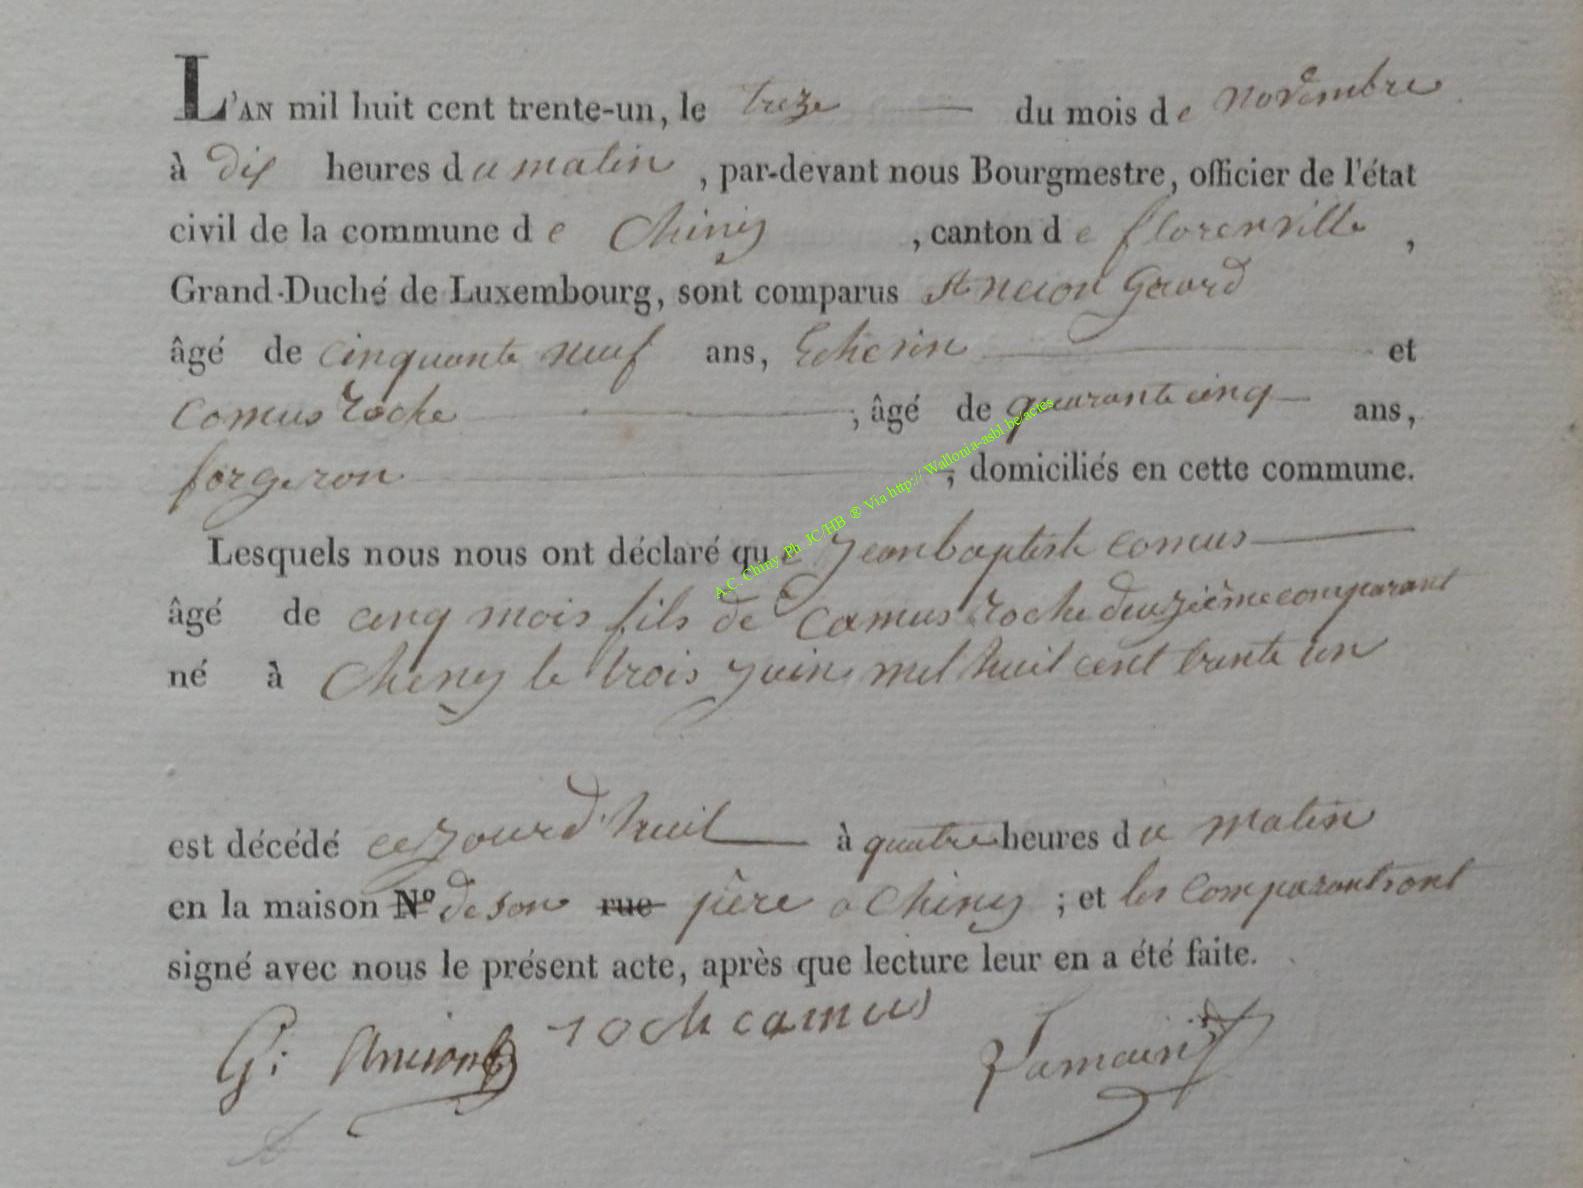 L'AN mil huit cent trente-un, le treze du mois de novembre
à dix heures du matin, par-devant nous Bourgmestre, officier de l'état
civil de la commune de Chiny, canton de florenville,
Grand-Duché de Luxembourg, sont comparus Gerard
âgé de cinquante neuf ans, Echevin et
Camus roche, âgé de quarante cinq ans,
forgeron, domiciliés en cette commune.
Lesquels nous nous ont déclaré que jean baptiste camus
âgé de cinq mois fils de Camus roche deuzième comparant
né à Chiny le trois juin mil huit cent trente un
est décédé cejourd'huil à quatre heures du matin
en la maison N° de son rue père a Chiny; et les comparant ont
signé avec nous le présent acte, après que lecture leur en a été faite.
G: Ancion roch camus
A.C. Chiny Ph JC/HB ® Via http://Wallonia-asbl.be/actes